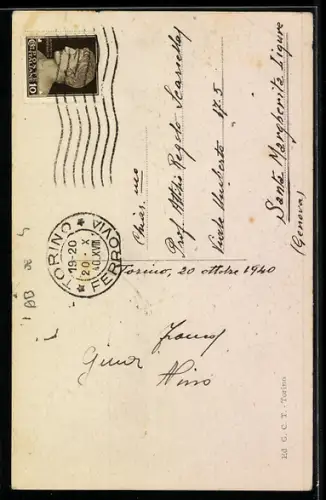 Chiar. mo
Prof. Attilio Regolo Scarsella
Corte Umberto 17.5
Santa Margherita Ligure
(Genova)
TORINO FERROVIA
19-20
20.X
40.XVIII
Torino, 20 ottobre 1940
Nino
Ed G. C. T. - Torino
10